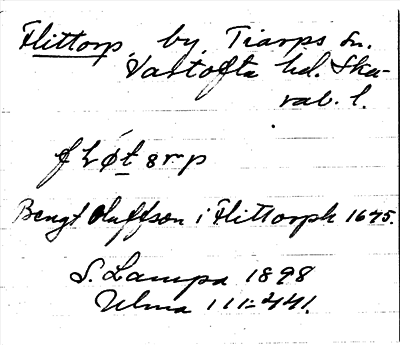 Flittorp, by, Tiarps sn.
Vartofta hd. Ska-
rab. l.
Bengt Oluffson i Flittorph 1675.
S. Lampa 1898
Ulma 111:441.